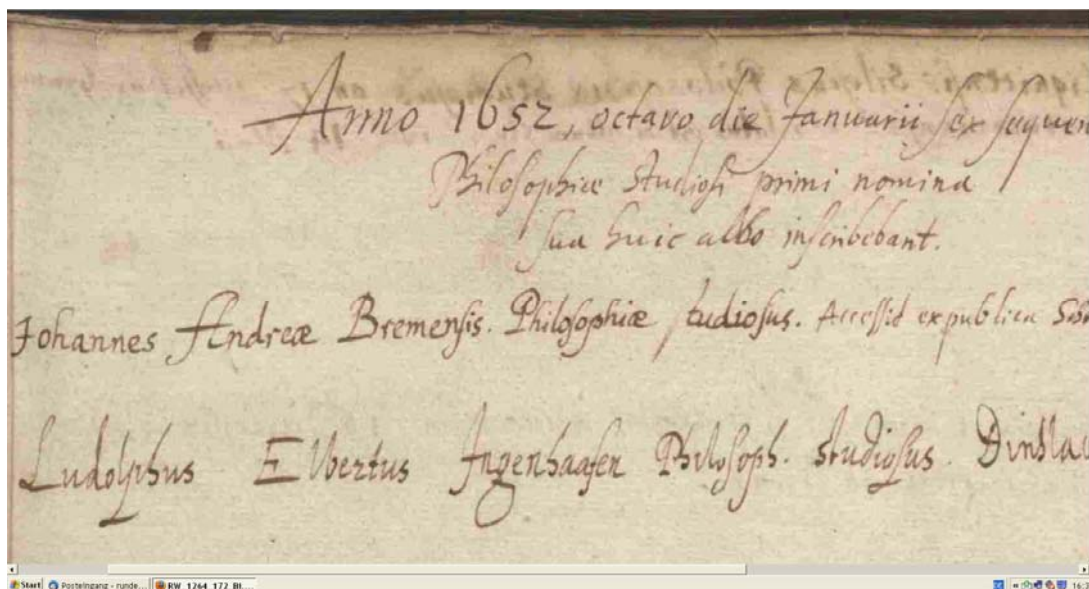 Anno 1652, octavo die Januarii sex sequen
Philosophiæ Studiosi primi nomina
sua huic albo inscribebant.
Johannes Andreæ Bremensis. Philosophiæ studiosus. Accessid expublica
Ludolphus Elbertus Ingenhaafen Philosoph. studiosus. Dinsla
Start Posteingang - runde... RW_1264_172_Bl....
DE « 16:3